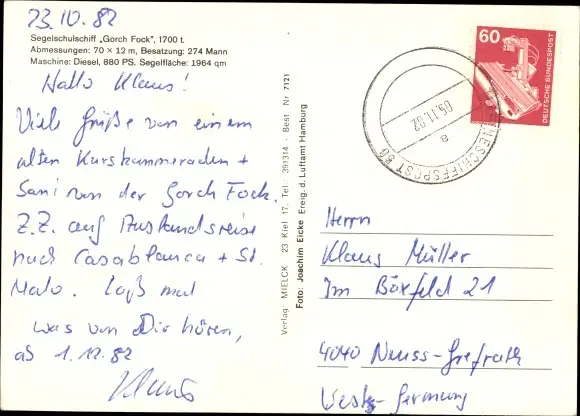 23.10.82
Segelschulschiff „Gorch Fock", 1700 t.
Abmessungen: 70 × 12 m, Besatzung: 274 Mann
Maschine: Diesel, 880 PS. Segelfläche: 1964 qm
Hallo Klaus!
Viele Grüße von einem
alten Kurskammeraden +
Sani von der Gorch Fock.
Z.Z. auf Auslandsreise
nach Casablanca + St.
Malo. Laß mal
was von Dir hören,
ab 1.12.82
Verlag: MIELCK 23 Kiel 17, Tel.: 391314 - Best. Nr 7121
Foto: Joachim Eicke Ereig. d. Luftamt Hamburg
60
DEUTSCHE BUNDESPOST
05.11.82
a
Herrn
Klaus Müller
Im Börfeld 21
4040 Neuss-Grefrath
West-Germany